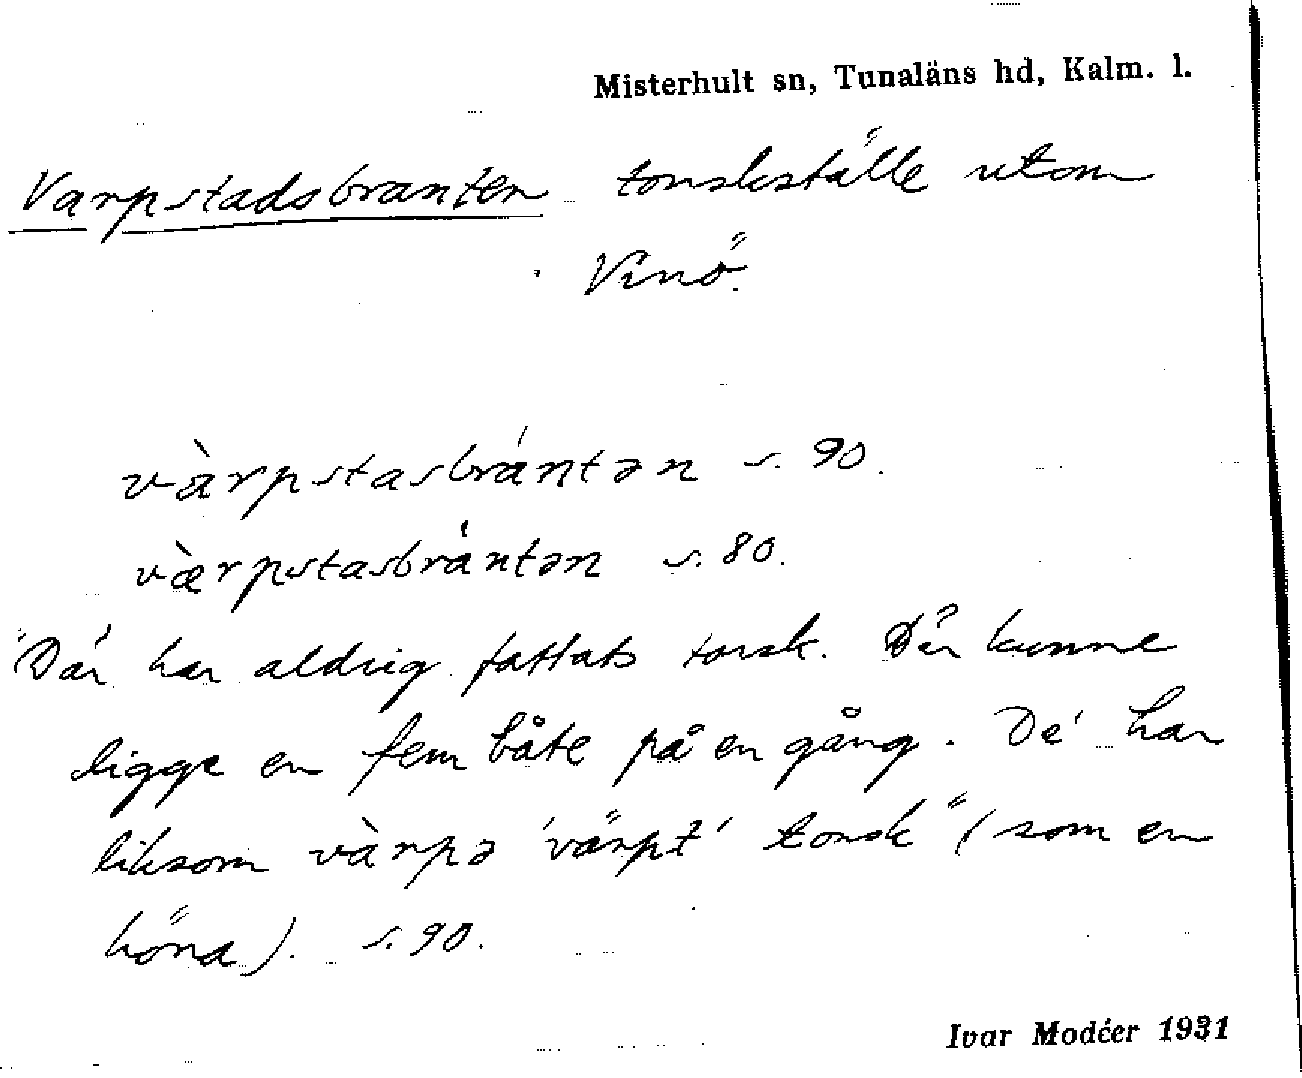 Misterhult sn, Tunaläns hd, Kalm. l.
Varpstadsbranten torskställe utom
Vinö.
vàrpstasbrántən s. 90.
væ̀rpstasbrántən s. 80.
"Där har aldrig fattats torsk. Där kunne
ligge en fem båte på en gång. De' har
liksom vàrpə 'värpt' torsk" (som en
höna). s. 90.
Ivar Modéer 1931